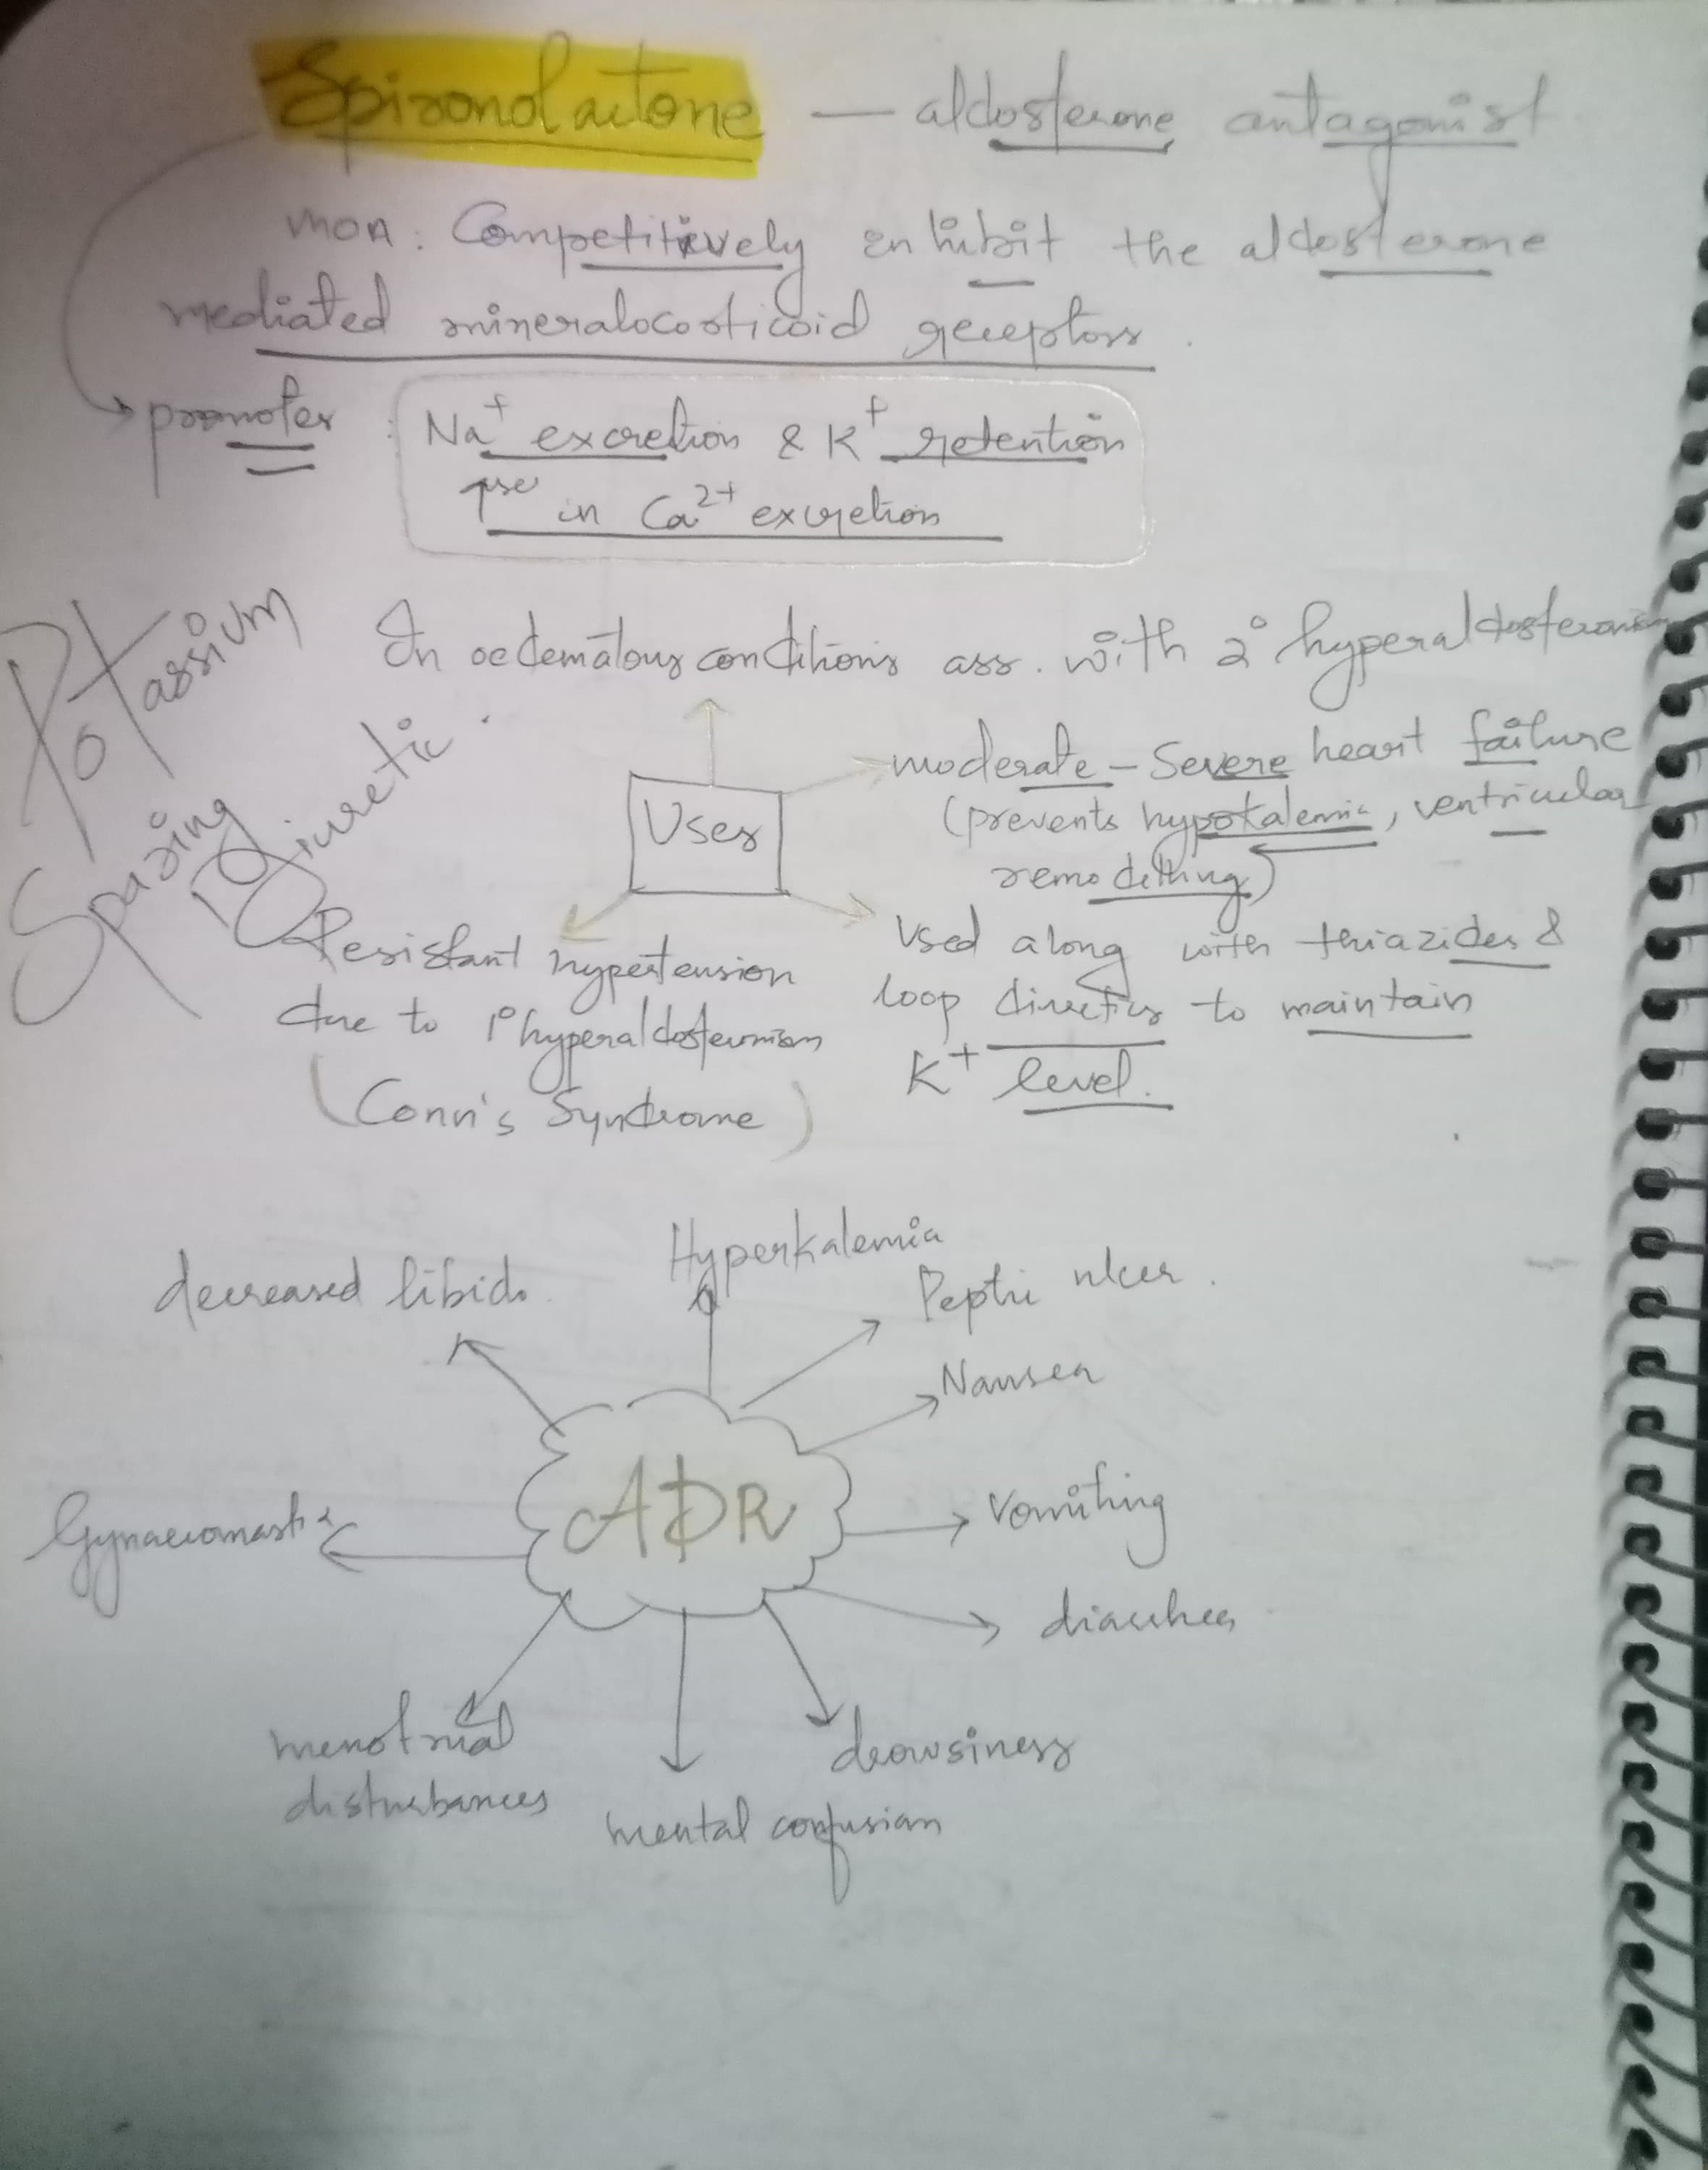 Spironolactone — aldosterone antagonist
MOA : Competitively inhibit the aldosterone
mediated mineralocorticoid receptors.
promotes : Na+ excretion & K+ retention
↑se in Ca2+ excretion
Potassium
Sparing Diuretic.
In oedematous conditions ass. with 2° hyperaldosteronism
Uses
moderate – Severe heart failure
(prevents hypokalemia, ventricular
remodelling)
Used along with thiazides &
loop diuretics to maintain
K+ level.
Resistant hypertension
due to 1° hyperaldosteronism
(Conn's Syndrome)
Hyperkalemia
decreased libido.
Peptic ulcer.
Nausea
ADR
Vomiting
Gynaecomastia
diarrhea
menstrual
disturbances
drowsiness
mental confusion